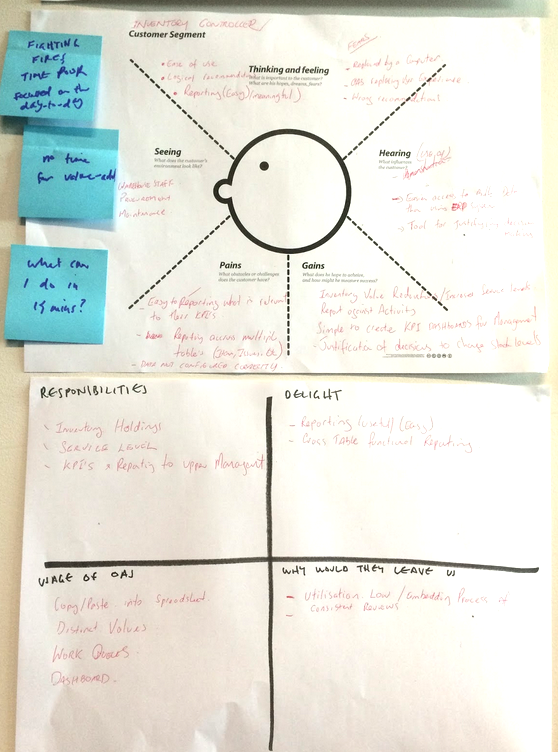 FIGHTING
FIRES
TIME POOR
focused on the
day-to-day
no time
for value-add
what can
I do in
15 mins?
INVENTORY CONTROLLER
Customer Segment
• Ease of use
• Logical recommendation
• Reporting (Easy)(meaningful)
Thinking and feeling
What is important to the customer?
What are his hopes, dreams, fears?
FEARS
- Replaced by a Computer
- OAS replacing
- recommendations
Seeing
What does the customer's
environment look like?
WAREHOUSE STAFF
PROCUREMENT
MAINTENANCE
Hearing
What influences
the customer?
→ Easier access to
than using ERP system
→ Tool for
Pains
What obstacles or challenges
does the customer have?
- Easy to Reporting what is relevant
to their KPI's
- Reporting across multiple
tables
- DATA NOT CONFIGURED CORRECTLY
Gains
What does he hope to achieve,
and how might he measure success?
Inventory Value Reduction / Service Levels
Report against Activity
Simple to create KPI DASHBOARDS for Management
- Justification of decisions to change stock levels
RESPONIBILITIES
- Inventory Holdings
- SERVICE LEVEL
- KPI's & Reporting to upper Management
DELIGHT
- Reporting (useful) (easy)
- Cross Table functional Reporting
USAGE OF OAS
Copy/Paste into Spreadsheet.
Distinct Values
WORK QUEUES.
DASHBOARD.
WHY WOULD THEY LEAVE US
- Utilisation Low / Embedding Process of
Consistent Reviews
-